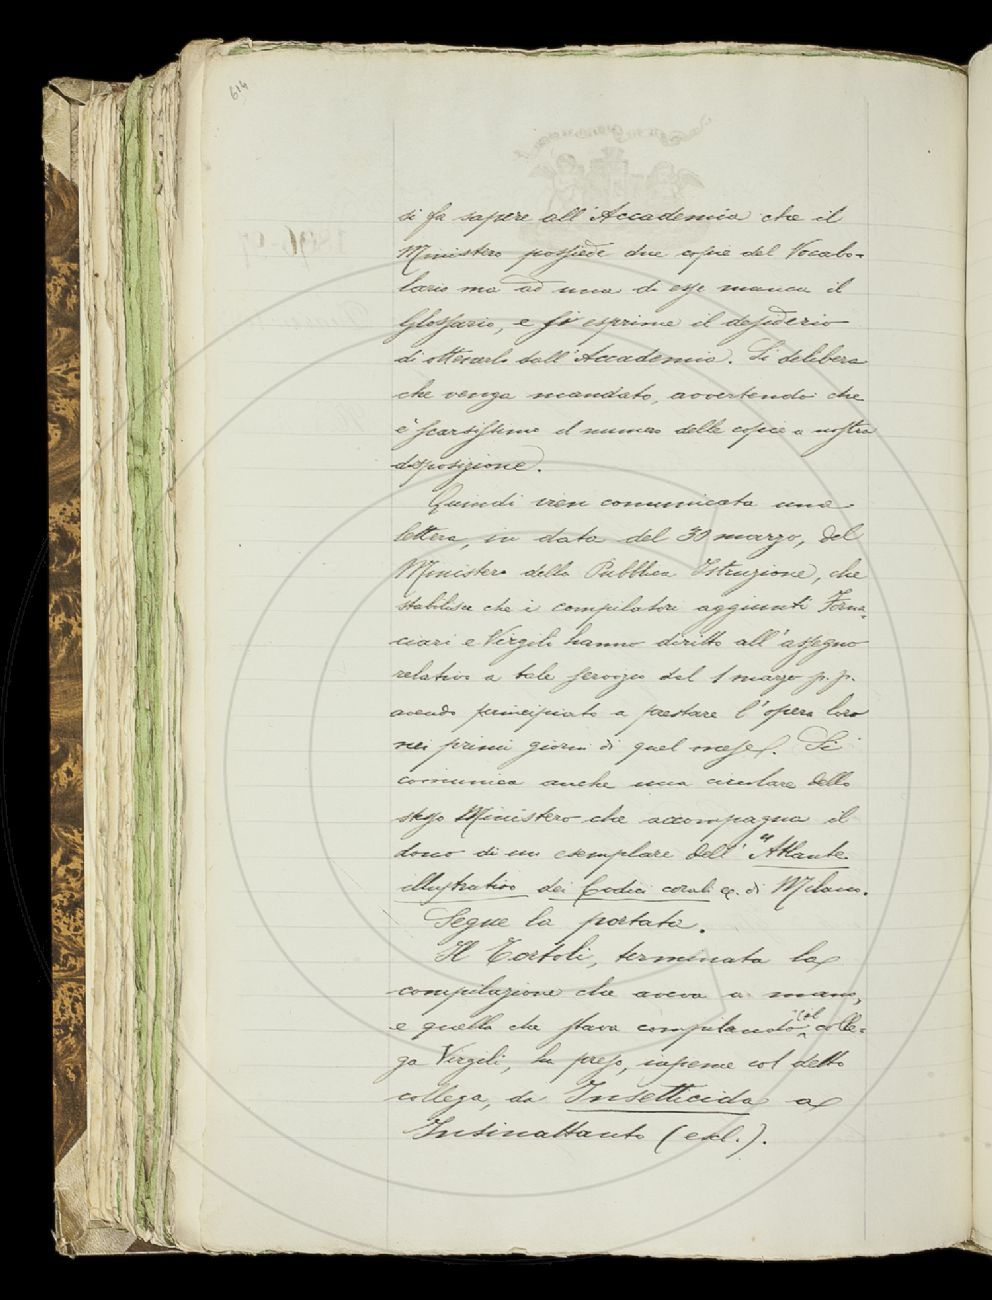 614
si fa sapere all'Accademia che il
Ministero possiede due copie del Vocabo-
lario ma ad una di esse manca il
Glossario, e si esprime il desiderio
di ottenerlo dall'Accademia. Si delibera
che venga mandato, avvertendo che
è scarsissimo il numero delle copie a nostra
disposizione.
Quindi vien comunicata una
lettera, in data del 30 marzo, del
Ministero della Pubblica Istruzione, che
stabilisce che i compilatori aggiunti Forna-
ciari e Virgili hanno diritto all'assegno
relativo a tale servizio dal 1 marzo p.p.
avendo principiato a prestare l'opera loro
nei primi giorni di quel mese. Si
comunica anche una circolare dello
stesso Ministero che accompagna il
dono di un esemplare dell'"Atlante
illustrativo dei Codici corali &. di Milano.
Segue la portata.
Il Tortoli, terminata la
compilazione che aveva a mano,
e quella che stava compilando col colle-
ga Virgili, ha preso, insieme col detto
collega, da Insetticida a
Insinattanto (escl.).